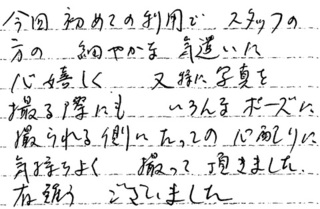 今回 初めての利用で スタッフの
方の 細やかな 気遣いに
心嬉しく 又特に写真を
撮る際にも いろんなポーズに
撮られる側にたっての心配りに
気持ちよく 撮って頂きました.
有難う ございました